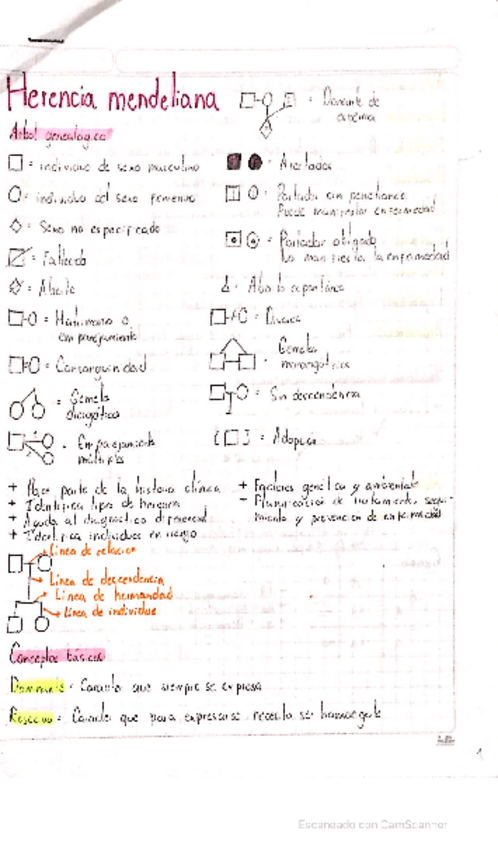 Herencia mendeliana
Árbol genealógico
= individuo de sexo masculino
= individuo del sexo femenino
= Sexo no especificado
= Fallecido
= Aborto
= Matrimonio o
emparejamiento
= Consanguinidad
= Gemelos
dicigóticos
= Emparejamiento
múltiples
= Donante de
= Afectados
= Portador con penetrancia
Puede manifestar enfermedad
= Portador obligado
No manifiesta la enfermedad
= Aborto espontáneo
= Divorcio
= Gemelos
monocigóticos
= Sin descendencia
= Adopción
+ Hace parte de la historia clínica
+ Identifica tipo de herencia
+ Ayuda al diagnóstico diferencial
+ Identifica individuos en riesgo
+ Factores genéticos y ambientales
- Planificación de tratamiento, segui-
miento y prevención de enfermedad
Línea de relación
Línea de descendencia
Línea de hermandad
Línea de individuo
Conceptos básicos
Dominante = Carácter que siempre se expresa
Recesivo = Carácter que para expresarse necesita ser homocigoto
Escaneado con CamScanner